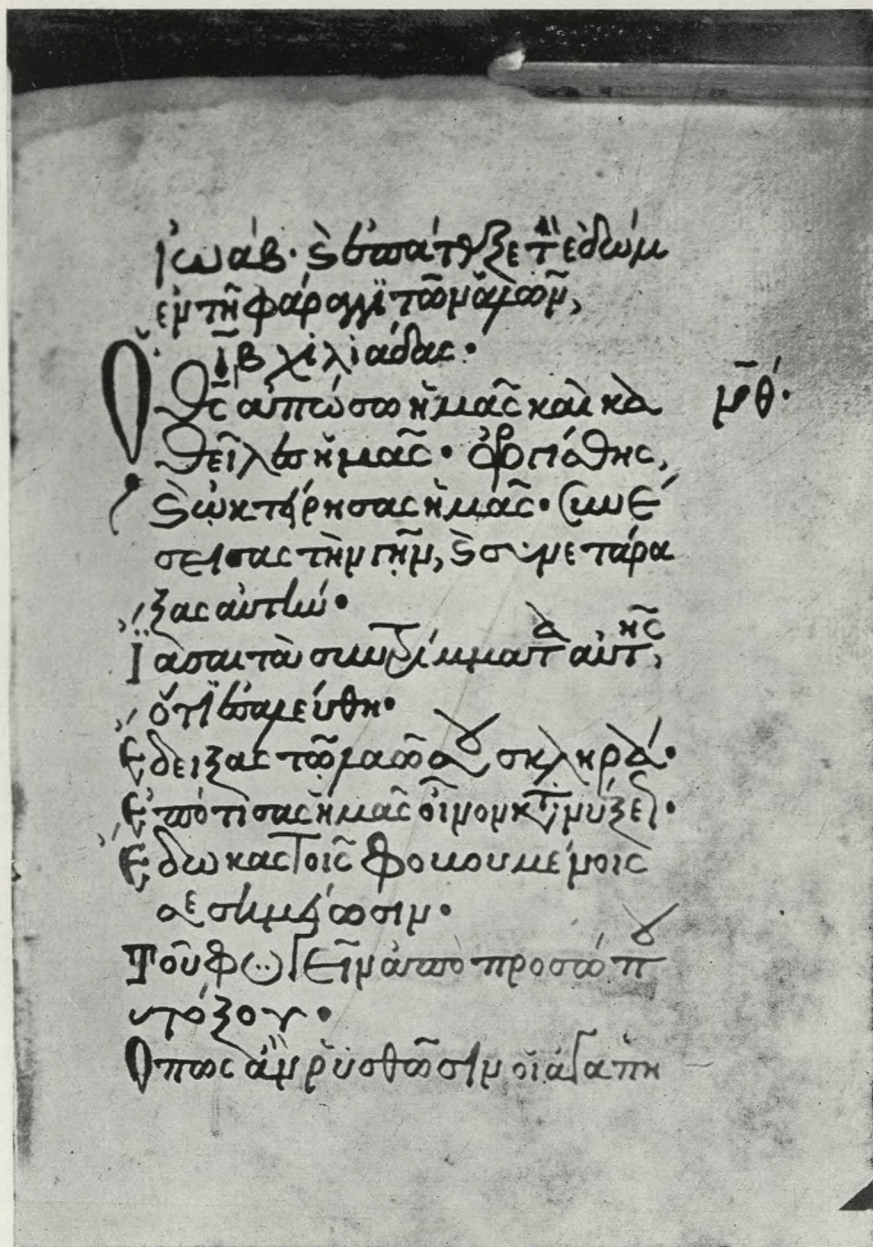 Ἰωάβ· καὶ ἐπάταξε τὸν ἐδὼμ
ἐν τῇ φάραγγι τῶν ἁλῶν,
ιβ χιλιάδας·
Ὁ θς ἀπώσω ἡμᾶς καὶ κα μθ·
θεῖλες ἡμᾶς· ὀργίσθης,
καὶ ὠκτείρησας ἡμᾶς· Cυνέ
σεισας τὴν γῆν, καὶ συνετάρα
ξας αὐτήν·
Ἴασαι τὰ συντρίμματα αὐτῆς,
ὅτι ἐσαλεύθη·
Ἔδειξας τῷ λαῷ σου σκληρά·
Ἐπότισας ἡμᾶς οἶνον κατανύξεως·
Ἔδωκας τοῖς φοβουμένοις
σε σημείωσιν·
Τοῦ φυγεῖν ἀπὸ προσώπου
τόξου·
Ὅπως ἂν ῥυσθῶσιν οἱ ἀγαπη